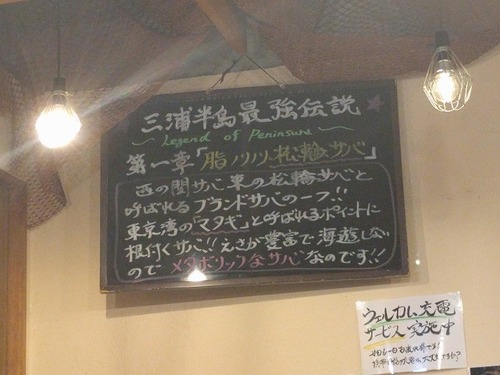 三浦半島最強伝説
~ Legend of Peninsura ~
第一章「脂ノリノリ松輪サバ」
西の関サバ 東の松輪サバと
呼ばれるブランドサバの一つ!!
東京湾の「マタギ」と呼ばれるポイントに
根付くサバ!! えさが豊富で海遊しない
ので メタボリックなサバ なのです!!
ウェルカム充電
サービス実施中